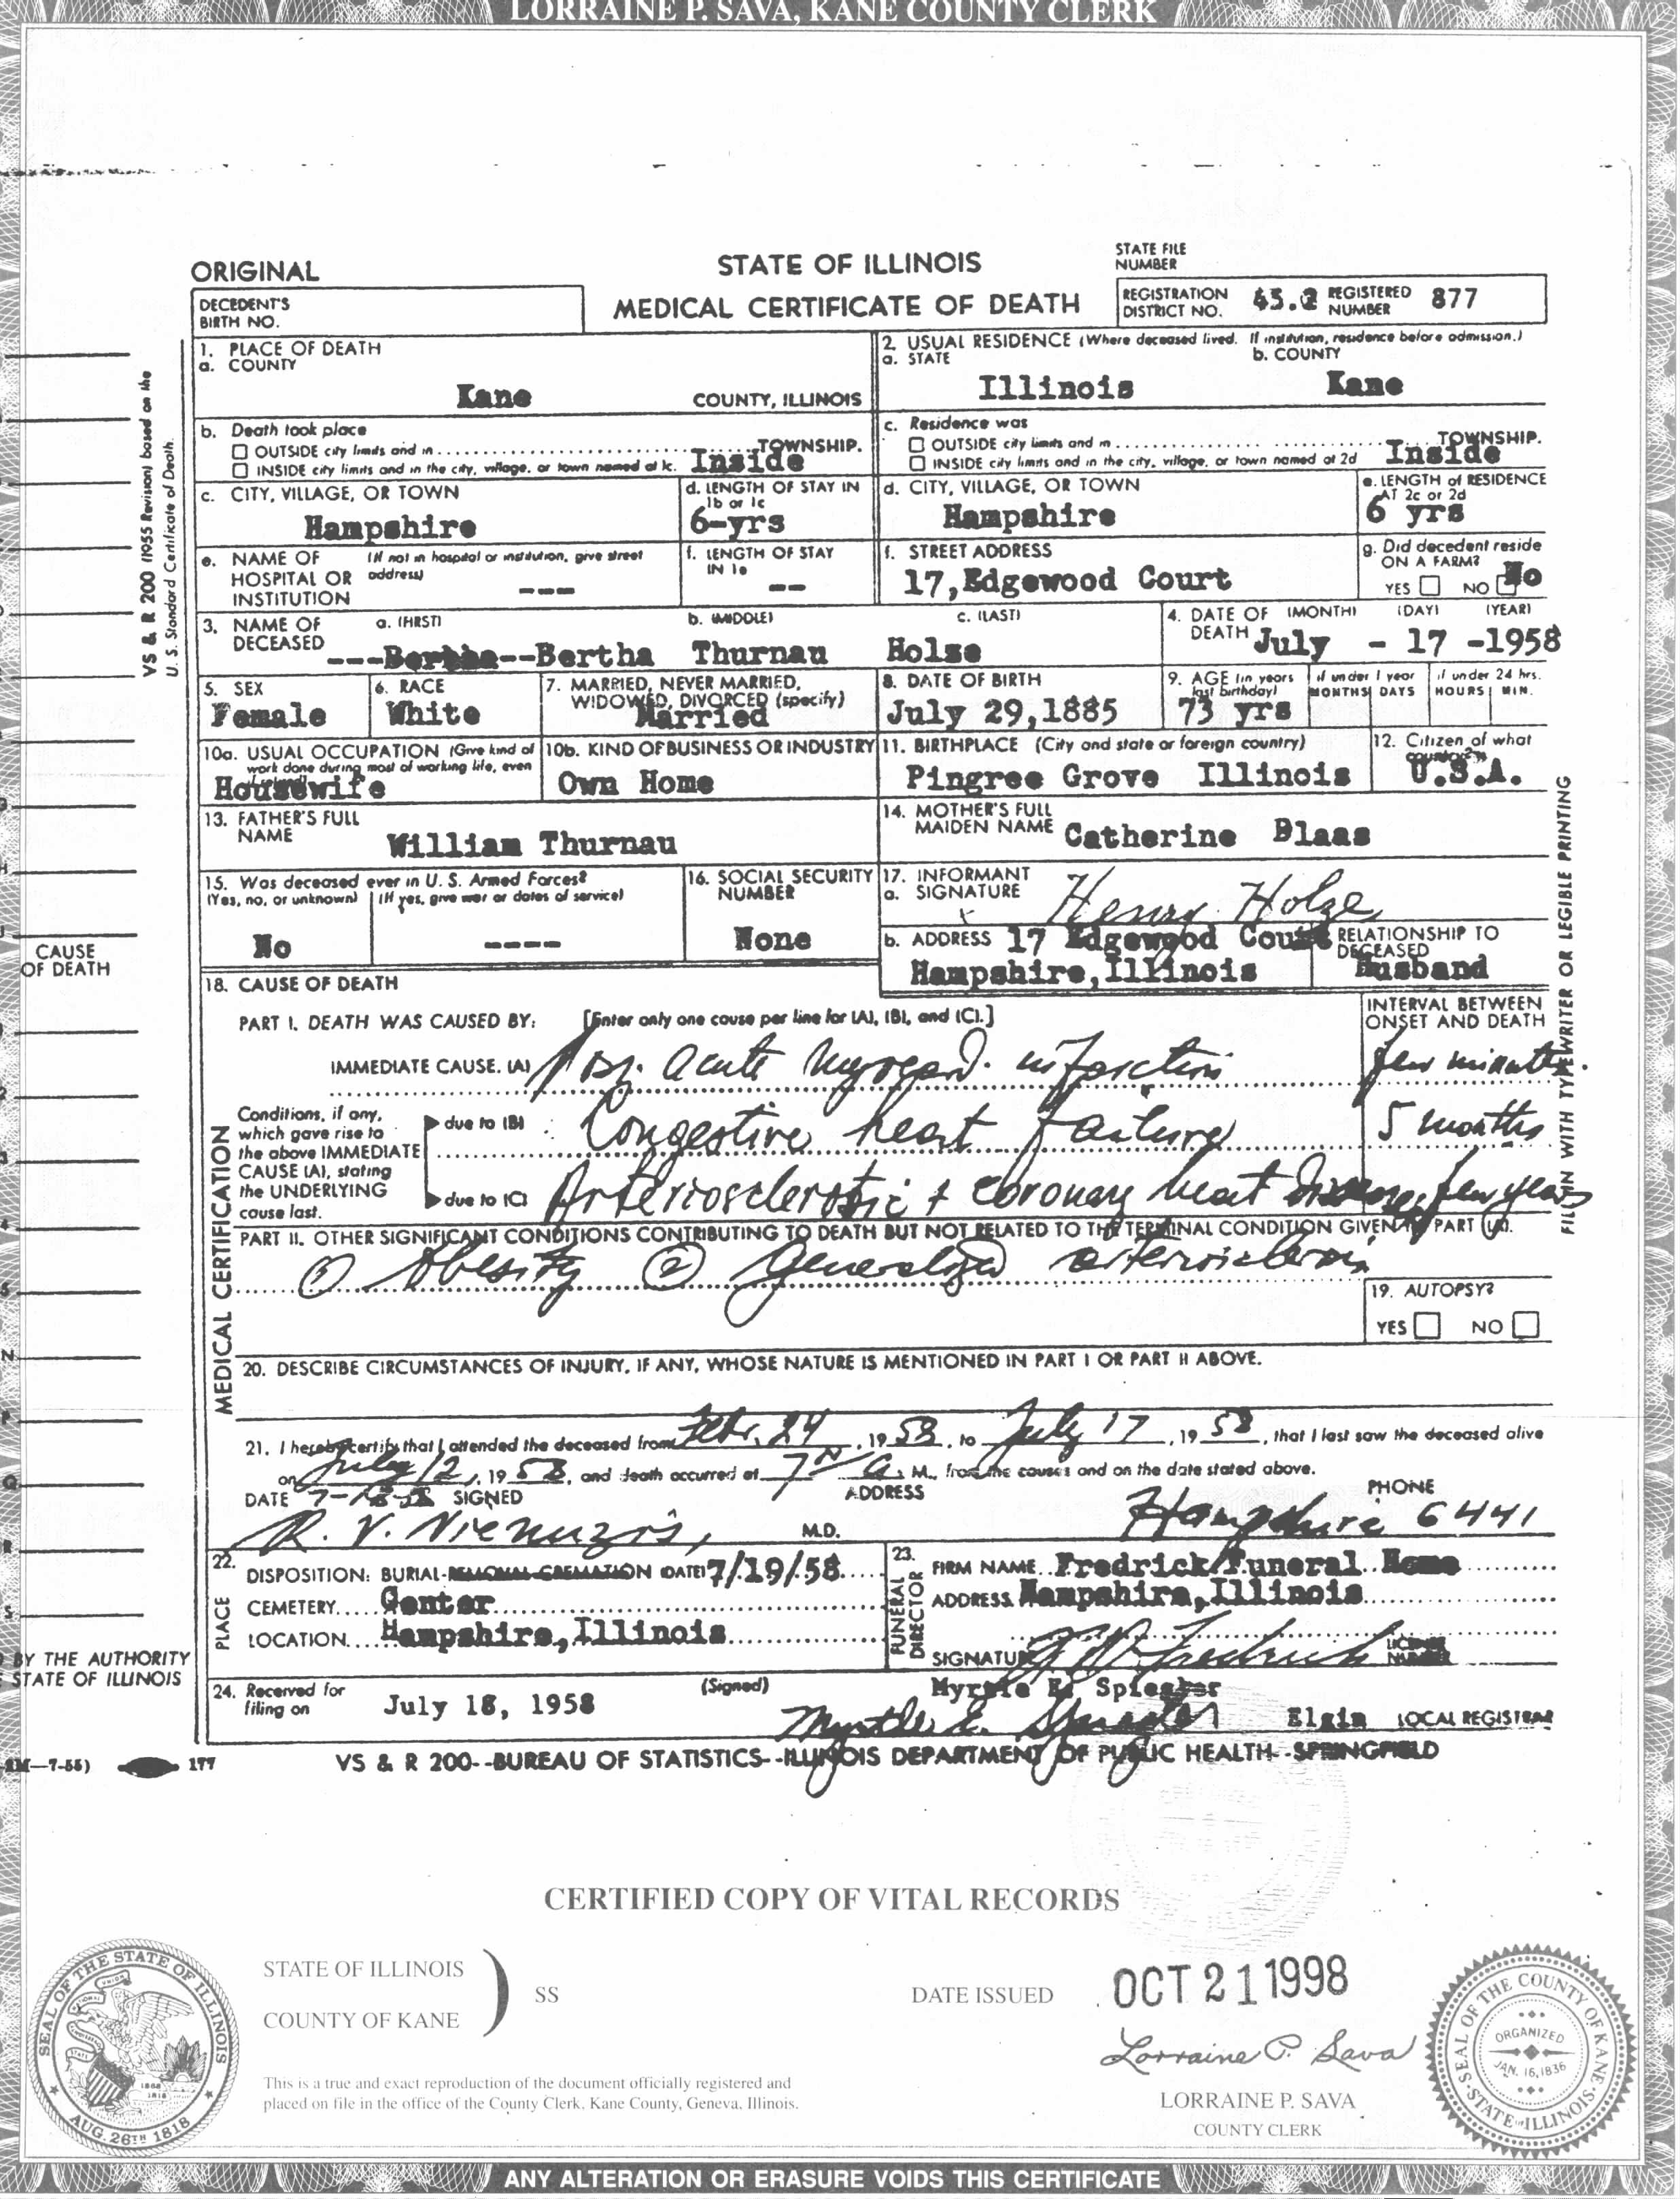 LORRAINE P. SAVA, KANE COUNTY CLERK
ORIGINAL
STATE OF ILLINOIS
STATE FILE NUMBER
DECEDENT'S BIRTH NO.
MEDICAL CERTIFICATE OF DEATH
REGISTRATION DISTRICT NO. 45.2 REGISTERED NUMBER 877
1. PLACE OF DEATH
a. COUNTY
Kane COUNTY, ILLINOIS
2. USUAL RESIDENCE (Where deceased lived. If institution, residence before admission.)
a. STATE b. COUNTY
Illinois Kane
b. Death took place
OUTSIDE city limits and in TOWNSHIP.
INSIDE city limits and in the city, village, or town named at 1c. Inside
c. Residence was
OUTSIDE city limits and in TOWNSHIP.
INSIDE city limits and in the city, village, or town named at 2d Inside
c. CITY, VILLAGE, OR TOWN
Hampshire
d. LENGTH OF STAY IN 1b or 1c
6-yrs
d. CITY, VILLAGE, OR TOWN
Hampshire
e. LENGTH of RESIDENCE AT 2c or 2d
6 yrs
e. NAME OF HOSPITAL OR INSTITUTION (If not in hospital or institution, give street address)
---
f. LENGTH OF STAY IN 1e
--
f. STREET ADDRESS
17, Edgewood Court
g. Did decedent reside ON A FARM?
YES NO No
3. NAME OF DECEASED a. (FIRST) b. (MIDDLE) c. (LAST)
---Bertha--Bertha Thurnau Holze
4. DATE OF DEATH (MONTH) (DAY) (YEAR)
July - 17 -1958
5. SEX
Female
6. RACE
White
7. MARRIED, NEVER MARRIED, WIDOWED, DIVORCED (specify)
Married
8. DATE OF BIRTH
July 29,1885
9. AGE (in years last birthday)
73 yrs
if under 1 year MONTHS DAYS
if under 24 hrs. HOURS MIN.
10a. USUAL OCCUPATION (Give kind of work done during most of working life, even
Housewife
10b. KIND OF BUSINESS OR INDUSTRY
Own Home
11. BIRTHPLACE (City and state or foreign country)
Pingree Grove Illinois
12. Citizen of what country?
U.S.A.
13. FATHER'S FULL NAME
William Thurnau
14. MOTHER'S FULL MAIDEN NAME
Catherine Blaas
15. Was deceased ever in U. S. Armed Forces?
(Yes, no, or unknown) (If yes, give war or dates of service)
No ----
16. SOCIAL SECURITY NUMBER
None
17. INFORMANT
a. SIGNATURE
Henry Holze
b. ADDRESS 17 Edgewood Court
Hampshire, Illinois
RELATIONSHIP TO DECEASED
Husband
18. CAUSE OF DEATH
PART I. DEATH WAS CAUSED BY: [Enter only one cause per line for (A), (B), and (C).]
INTERVAL BETWEEN ONSET AND DEATH
IMMEDIATE CAUSE. (A) acute myocard. infarction few minutes
Conditions, if any, which gave rise to the above IMMEDIATE CAUSE (A), stating the UNDERLYING cause last.
due to (B) Congestive heart failure 5 months
due to (C) Arteriosclerotic + coronary heart disease, few years
PART II. OTHER SIGNIFICANT CONDITIONS CONTRIBUTING TO DEATH BUT NOT RELATED TO THE TERMINAL CONDITION GIVEN IN PART I (A).
① Obesity ② Generalized arteriosclerosis
19. AUTOPSY?
YES NO
MEDICAL CERTIFICATION
20. DESCRIBE CIRCUMSTANCES OF INJURY, IF ANY, WHOSE NATURE IS MENTIONED IN PART I OR PART II ABOVE.
21. I hereby certify that I attended the deceased from Febr. 24, 1958, to July 17, 1958, that I last saw the deceased alive
on July 12, 1958, and death occurred at 7 A. M., from the causes and on the date stated above.
DATE 7-18-58 SIGNED ADDRESS PHONE
R. V. Nienuzis, M.D. Hampshire 6441
22. PLACE
DISPOSITION: BURIAL-REMOVAL-CREMATION (DATE) 7/19/58
CEMETERY Center
LOCATION Hampshire, Illinois
23. FUNERAL DIRECTOR
FIRM NAME Fredrick Funeral Home
ADDRESS Hampshire, Illinois
SIGNATURE Fredrick LICENSE NUMBER
24. Received for filing on July 18, 1958
(Signed) Myrtle E. Spiegler
Myrtle E. Spiegler
Elgin LOCAL REGISTRAR
VS & R 200--BUREAU OF STATISTICS--ILLINOIS DEPARTMENT OF PUBLIC HEALTH--SPRINGFIELD
177
VS & R 200 (1955 Revision) based on the
U. S. Standard Certificate of Death.
CAUSE OF DEATH
BY THE AUTHORITY
STATE OF ILLINOIS
FILL IN WITH TYPEWRITER OR LEGIBLE PRINTING
CERTIFIED COPY OF VITAL RECORDS
STATE OF ILLINOIS
COUNTY OF KANE
SS
DATE ISSUED
OCT 21 1998
Lorraine P. Sava
LORRAINE P. SAVA
COUNTY CLERK
This is a true and exact reproduction of the document officially registered and
placed on file in the office of the County Clerk, Kane County, Geneva, Illinois.
SEAL OF THE STATE OF ILLINOIS
AUG. 26TH 1818
SEAL OF THE COUNTY OF KANE
STATE OF ILLINOIS
ORGANIZED
JAN. 16, 1836
ANY ALTERATION OR ERASURE VOIDS THIS CERTIFICATE